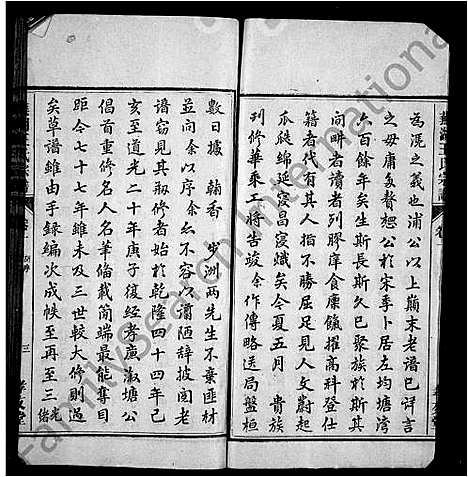 為渾之義也浦公以上顛末老譜已詳言
之毋庸多贅想公於宋季卜居左均塘灣
六百餘年矣生斯長斯久已聚族於斯其
間畊者讀者列膠庠食廩餼擢高科登仕
籍者代有其人指不勝屈足見人文蔚起
瓜瓞綿延寖昌寖熾矣今夏五月 貴族
刊修華乘工將告竣余作傳略送局盤桓
數日據 翰香 步洲兩先生不棄匪材
並向余以序余亦不容以谫陋辞披閲老
譜窃見其刱修者始於乾隆四十四年己
亥至道光二十年庚子復經孝廣淑塘公
倡首重修名人名筆倫載簡端最能奪目
距今七十七年雖未及三世較大修則過
矣草譜雖由手録編次成帙至再至三光緒
三
FamilySearch International